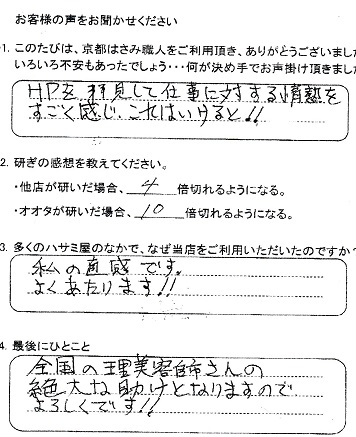 お客様の声をお聞かせください
1. このたびは、京都はさみ職人をご利用頂き、ありがとうございまし
いろいろ不安もあったでしょう・・・何が決め手でお声掛け頂きまし
HPを拝見して仕事に対する情熱を
すごく感じ、これはいけると!!
2. 研ぎの感想を教えてください。
・他店が研いだ場合、 4 倍切れるようになる。
・オオタが研いだ場合、 10 倍切れるようになる。
3. 多くのハサミ屋のなかで、なぜ当店をご利用いただいたのですか?
私の直感です。
よくあたります!!
4. 最後にひとこと
全国の理美容師さんの
絶大な助けとなりますので
よろしくです!!